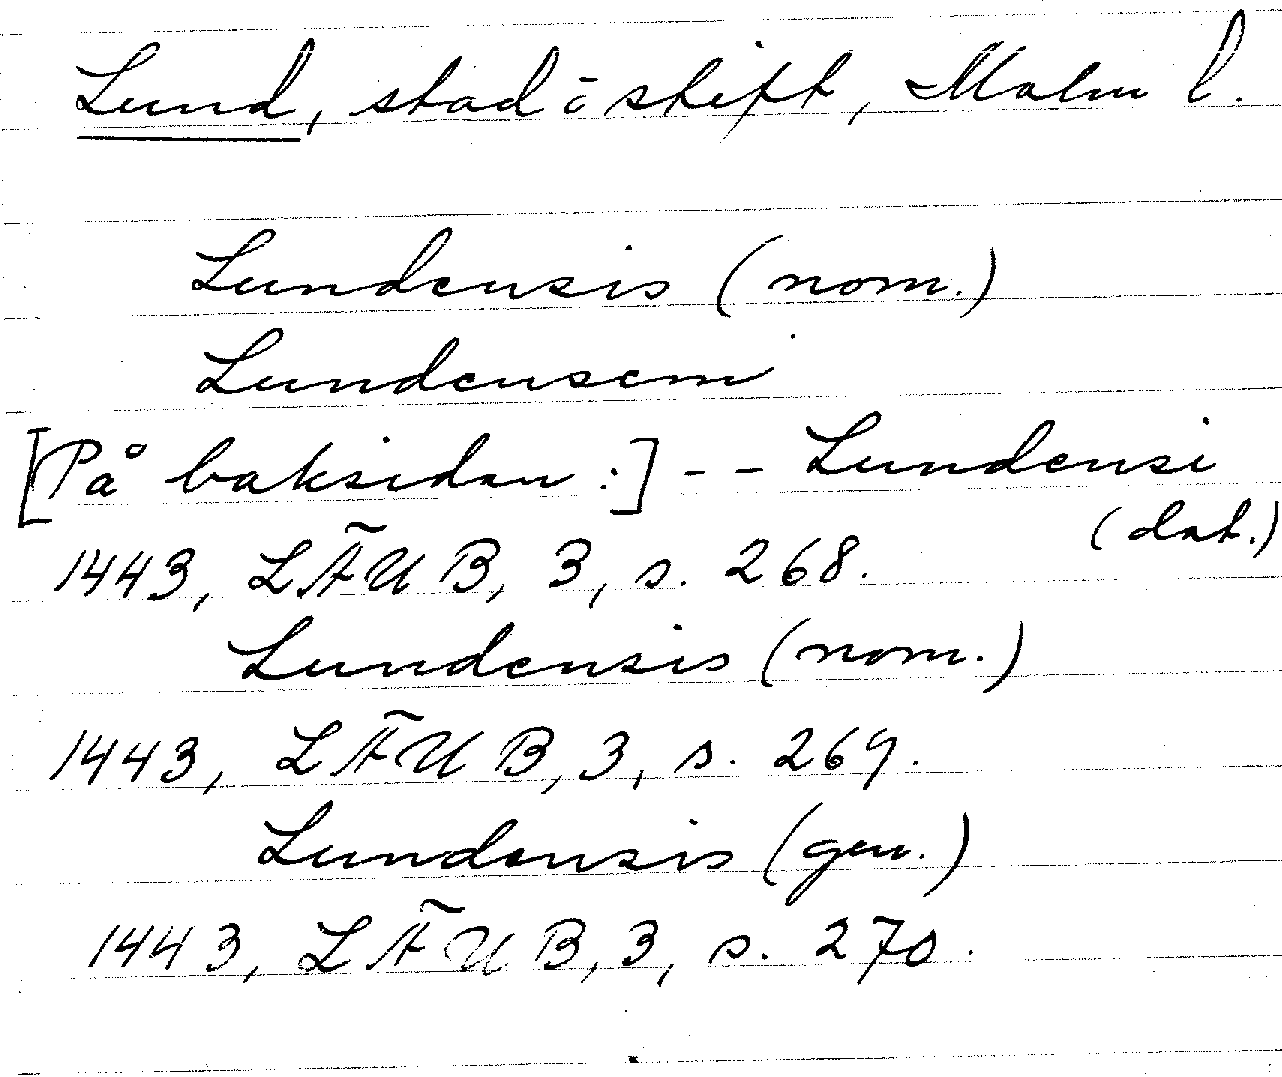 Lund, stad o stift, Malm l.
Lundensis (nom.)
Lundensem
[På baksidan:] -- Lundensi
(dat.)
1443, LÄUB, 3, s. 268.
Lundensis (nom.)
1443, LÄUB, 3, s. 269.
Lundensis (gen.)
1443, LÄUB, 3, s. 270.